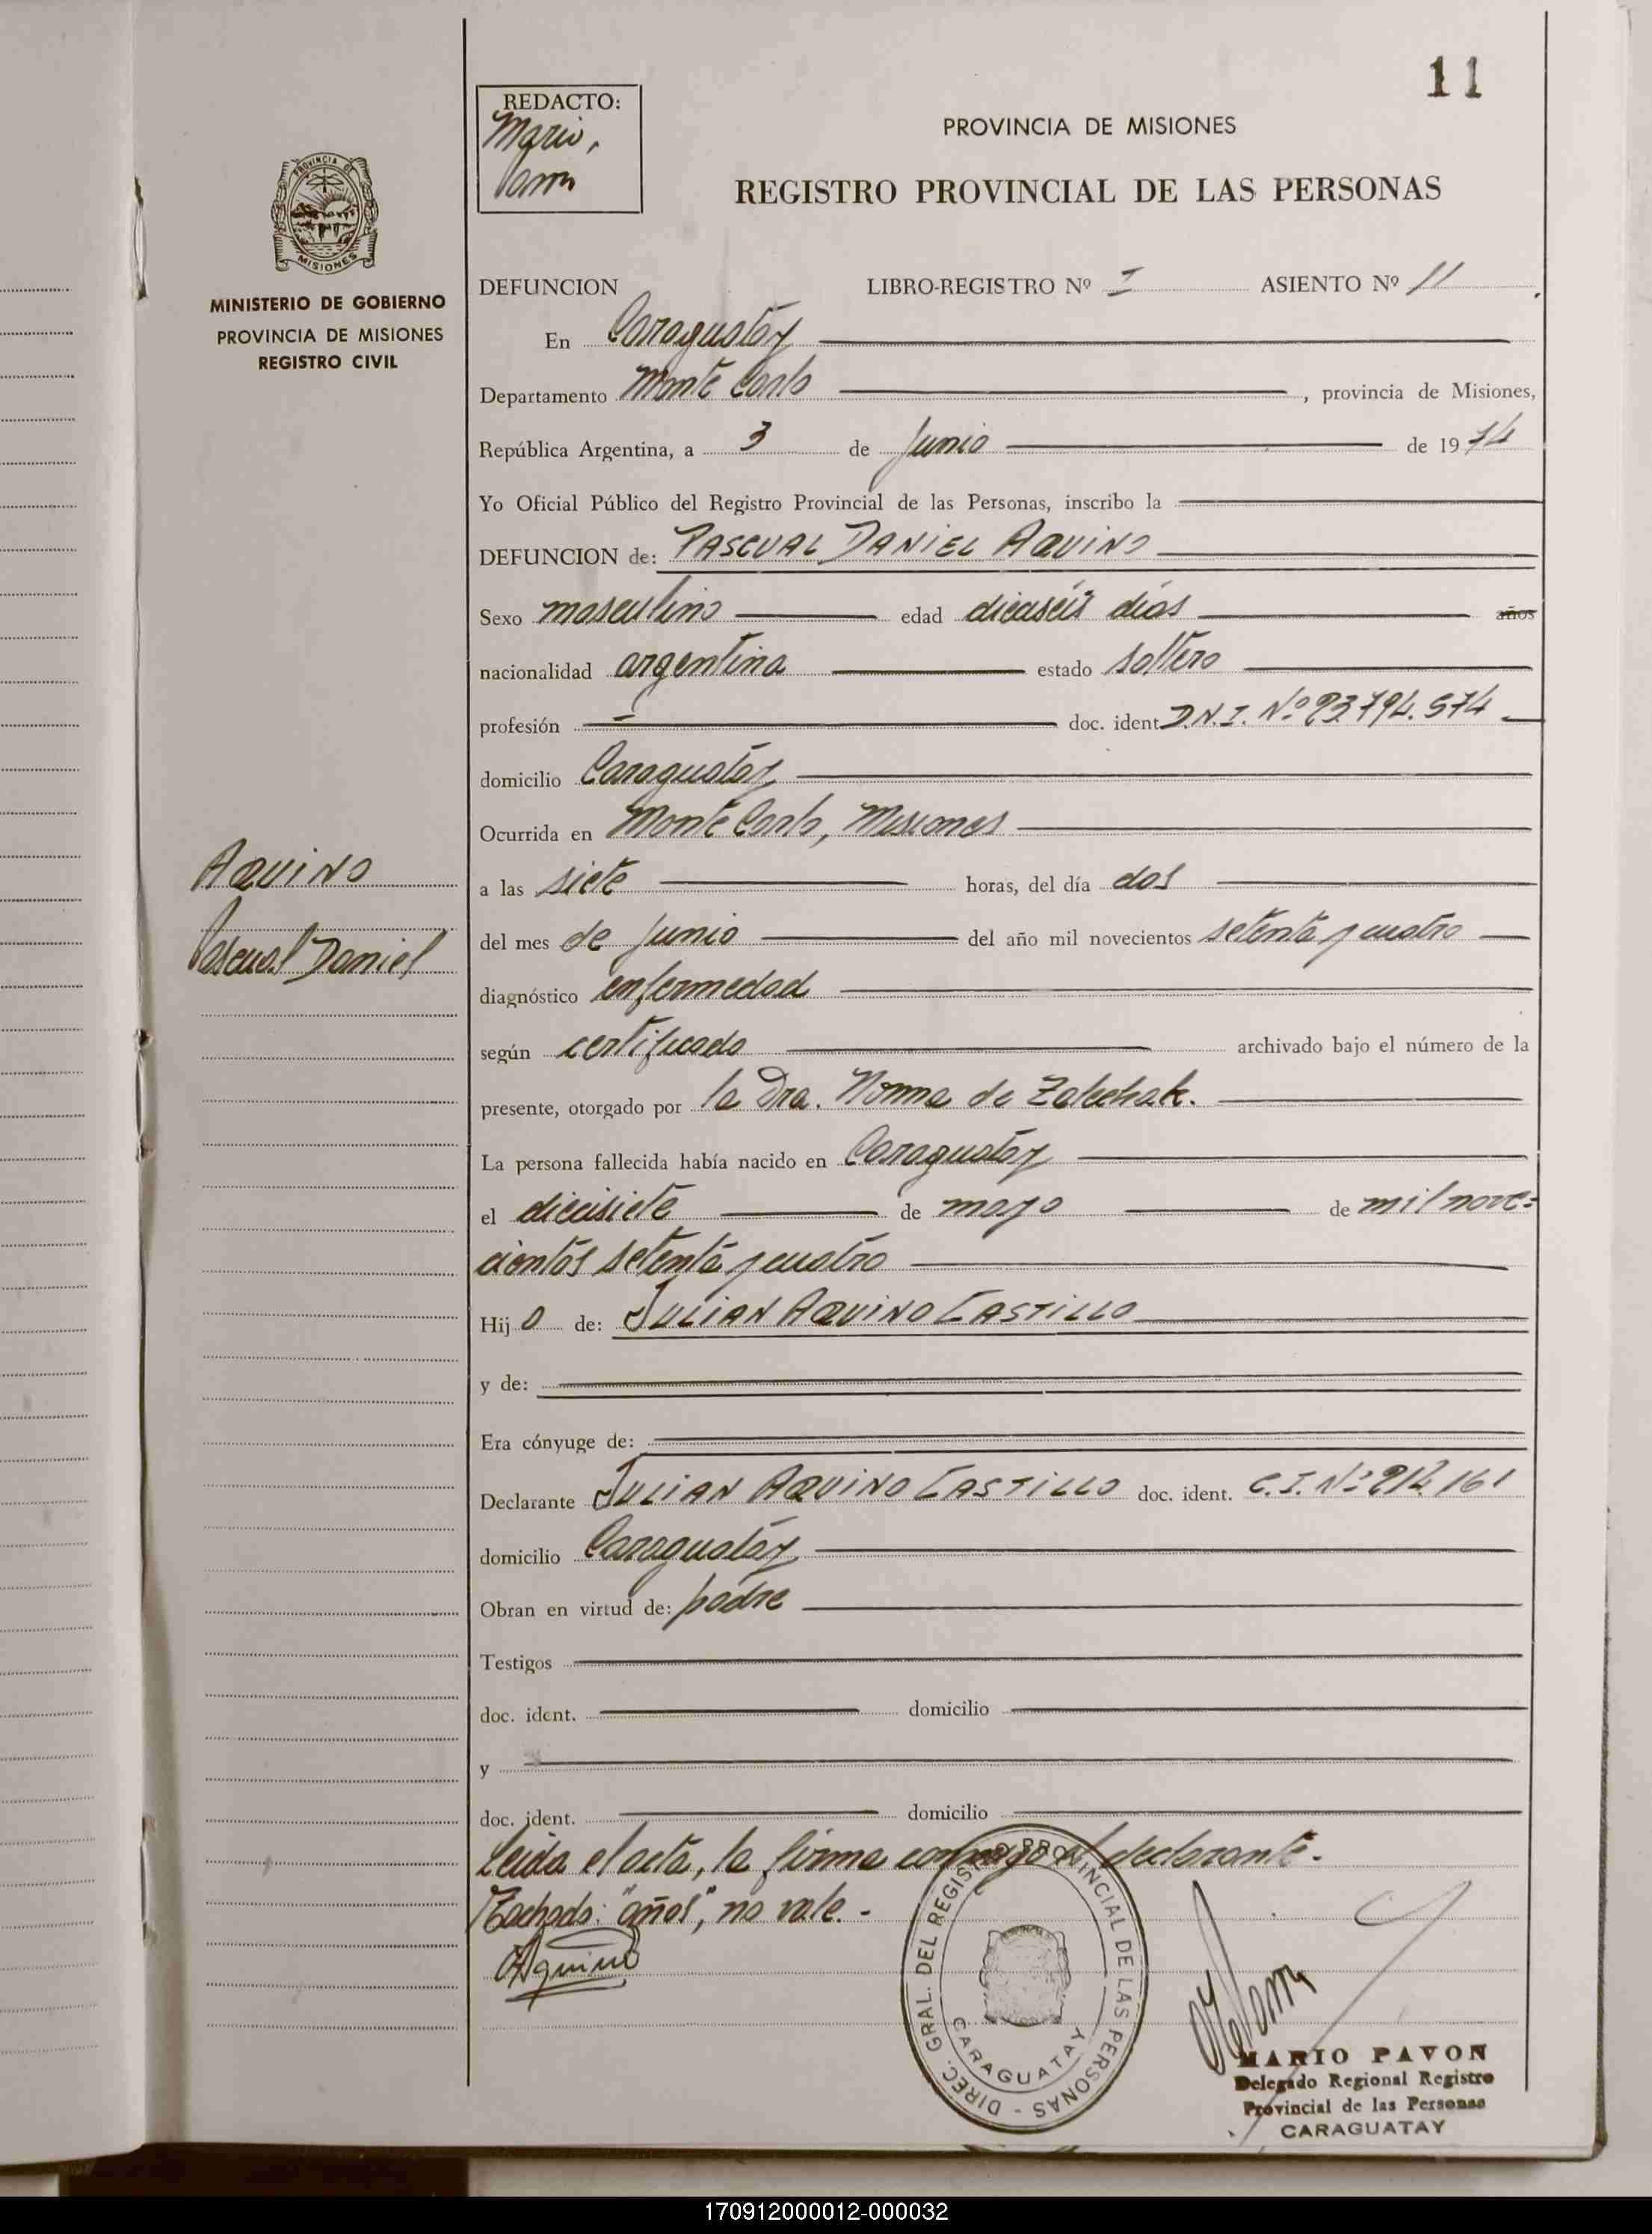 11
REDACTO:
Mario,
PROVINCIA DE MISIONES
REGISTRO PROVINCIAL DE LAS PERSONAS
PROVINCIA DE
MISIONES
MINISTERIO DE GOBIERNO
PROVINCIA DE MISIONES
REGISTRO CIVIL
DEFUNCION LIBRO-REGISTRO Nº I ASIENTO Nº 11
En Caraguatáy
Departamento Monte Carlo, provincia de Misiones,
República Argentina, a 3 de Junio de 1974
Yo Oficial Público del Registro Provincial de las Personas, inscribo la
DEFUNCION de: PASCUAL DANIEL AQUINO
Sexo masculino edad dieciséis días años
nacionalidad argentina estado soltero
profesión doc. ident. D.N.I. Nº 23.794.574
domicilio Caraguatáy
Ocurrida en Monte Carlo, Misiones
AQUINO
a las siete horas, del día dos
Pascual Daniel
del mes de Junio del año mil novecientos setenta y cuatro
diagnóstico enfermedad
según certificado archivado bajo el número de la
presente, otorgado por la Dra. Norma de
La persona fallecida había nacido en Caraguatáy
el diecisiete de mayo de mil nove-
cientos setenta y cuatro
Hijo de: JULIAN AQUINO CASTILLO
y de:
Era cónyuge de:
Declarante JULIAN AQUINO CASTILLO doc. ident. C.I. Nº 212.161
domicilio Caraguatáy
Obran en virtud de: padre
Testigos
doc. ident. domicilio
y
doc. ident. domicilio
Leida el acta, la firma conmigo el declarante.
Tachado: "años", no vale.-
Aquino
DIREC. GRAL. DEL REGISTRO PROVINCIAL DE LAS PERSONAS -
CARAGUATAY
MARIO PAVON
Delegado Regional Registro
Provincial de las Personas
CARAGUATAY
170912000012-000032